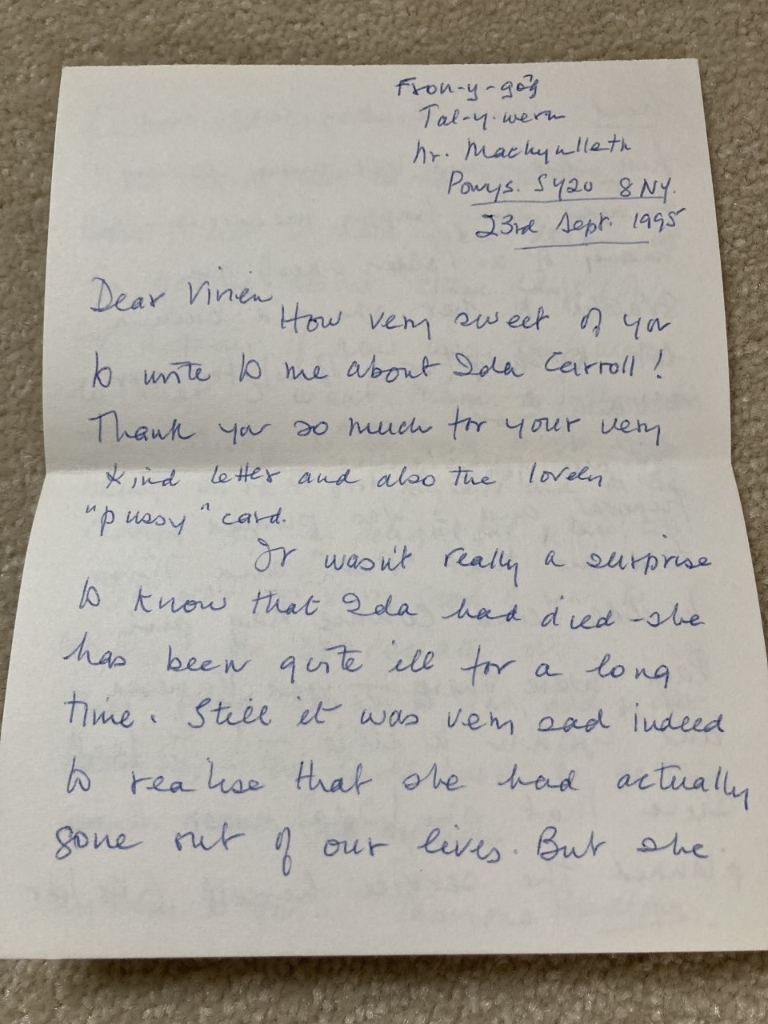 Fron-y-gôg
Tal-y-wern
Nr. Machynlleth
Powys. SY20 8NY.
23rd Sept. 1995
Dear Vivien
How very sweet of you
to write to me about Ida Carroll!
Thank you so much for your very
kind letter and also the lovely
"pussy" card.
It wasn't really a surprise
to know that Ida had died - she
has been quite ill for a long
time. Still it was very sad indeed
to realise that she had actually
gone out of our lives. But she